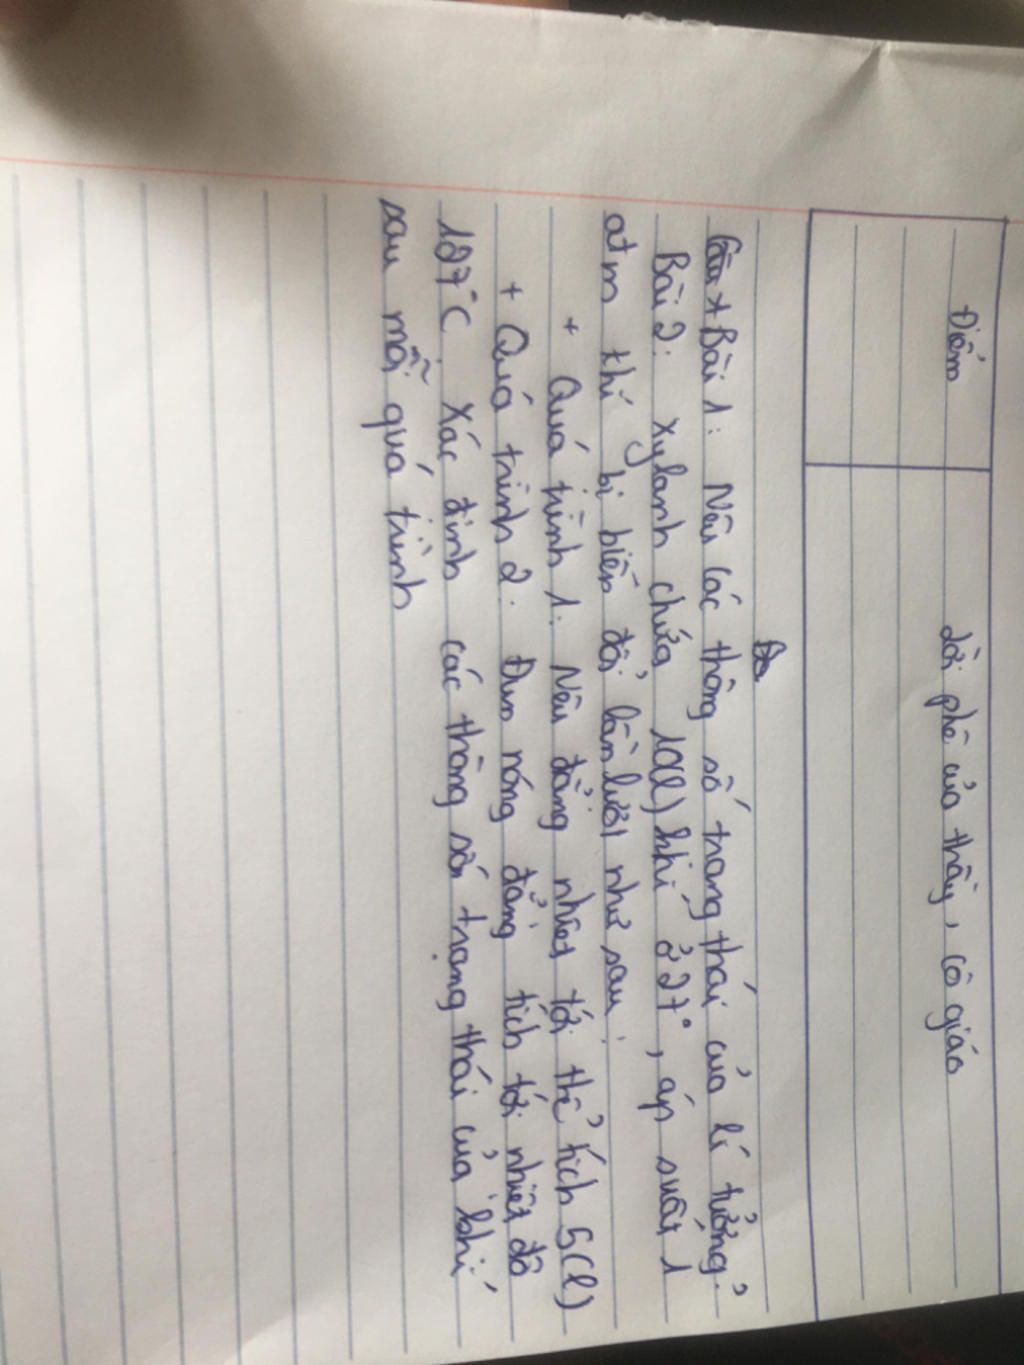 Điểm
Lời phê của thầy, cô giáo
Bài 1: Nêu các thông số trang thái của lí tưởng?
Bài 2: xylanh chứa 10(l) khí ở 27°, áp suất 1
atm khí bị biến đổi lần lượt như sau:
+ Quá trình 1: Nén đẳng nhiệt tới thể tích 5(l)
+ Quá trình 2: Đun nóng đẳng tích tới nhiệt độ
127°C. Xác định các thông số trạng thái của khí
sau mỗi quá trình